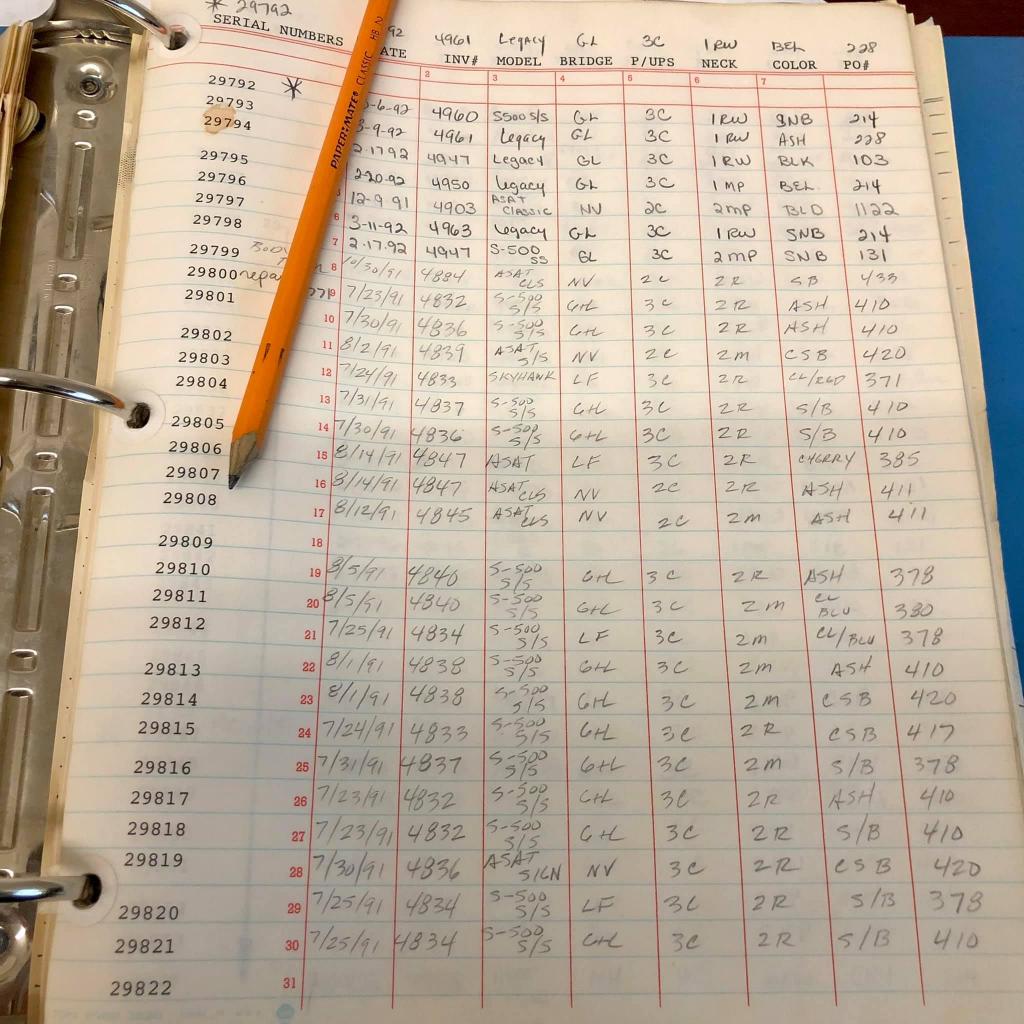 * 29792 92 4961 Legacy GL 3C 1RW BEL 228
SERIAL NUMBERS ATE INV# MODEL BRIDGE P/UPS NECK COLOR PO#
2 3 4 5 6 7
29792 *
29793 3-6-92 4960 S500 S/S GL 3C 1RW SNB 214
29794 3-9-92 4961 Legacy GL 3C 1RW ASH 228
29795 2·17 92 4947 Legacy GL 3C 1RW BLK 103
29796 2-20-92 4950 Legacy GL 3C 1MP BEL 214
29797 12-9 91 4903 ASAT CLASSIC NV 2C 2MP BLD 1122
29798 6 3-11-92 4963 Legacy GL 3C 1RW SNB 214
29799 Body 7 2·17.92 4947 S-500 SS GL 3C 2MP SNB 131
29800 8 10/30/91 4884 ASAT CLS NV 2C 2R SB 433
29801 9 7/23/91 4832 S-500 S/S G+L 3C 2R ASH 410
29802 10 7/30/91 4836 S-500 S/S G+L 3C 2R ASH 410
29803 11 8/2/91 4839 ASAT S/S NV 2C 2M CSB 420
29804 12 7/24/91 4833 SKYHAWK LF 3C 2R CL/RED 371
29805 13 7/31/91 4837 S-500 S/S G+L 3C 2R S/B 410
29806 14 7/30/91 4836 S-500 S/S G+L 3C 2R S/B 410
29807 15 8/14/91 4847 ASAT LF 3C 2R CHERRY 385
29808 16 8/14/91 4847 ASAT CLS NV 2C 2R ASH 411
17 8/12/91 4845 ASAT CLS NV 2C 2M ASH 411
29809 18
29810 19 8/5/91 4840 S-500 S/S G+L 3C 2R ASH 378
29811 20 8/5/91 4840 S-500 S/S G+L 3C 2M CL BLU 380
29812 21 7/25/91 4834 S-500 S/S LF 3C 2M CL/BLU 378
29813 22 8/1/91 4838 S-500 S/S G+L 3C 2M ASH 410
29814 23 8/1/91 4838 S-500 S/S G+L 3C 2M CSB 420
29815 24 7/24/91 4833 S-500 S/S G+L 3C 2R CSB 417
29816 25 7/31/91 4837 S-500 S/S G+L 3C 2M S/B 378
29817 26 7/23/91 4832 S-500 S/S G+L 3C 2R ASH 410
29818 27 7/23/91 4832 S-500 S/S G+L 3C 2R S/B 410
29819 28 7/30/91 4836 ASAT SIGN NV 3C 2R CSB 420
29820 29 7/25/91 4834 S-500 S/S LF 3C 2R S/B 378
29821 30 7/25/91 4834 S-500 S/S G+L 3C 2R S/B 410
29822 31
PAPER:MATE® CLASSIC HB 2